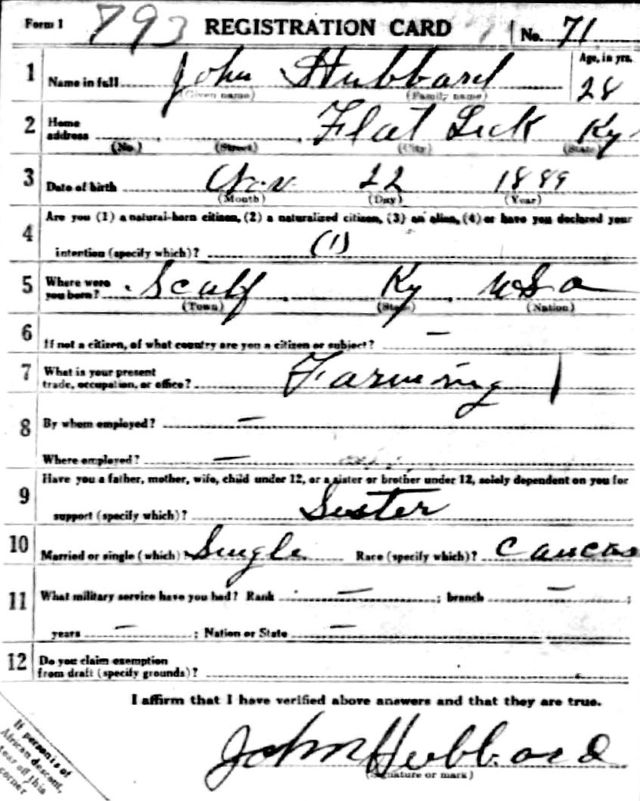 Form 1 793 REGISTRATION CARD No. 71
1 Name in full John Hubbard Age, in yrs. 28
(Given name) (Family name)
2 Home address Flat Lick Ky
(No.) (Street) (City) (State)
3 Date of birth Nov 22 1889
(Month) (Day) (Year)
4 Are you (1) a natural-born citizen, (2) a naturalized citizen, (3) an alien, (4) or have you declared your
intention (specify which)? (1)
5 Where were you born? Scalf Ky USA
(Town) (State) (Nation)
6 If not a citizen, of what country are you a citizen or subject? —
7 What is your present trade, occupation, or office? Farming
8 By whom employed? —
Where employed? —
9 Have you a father, mother, wife, child under 12, or a sister or brother under 12, solely dependent on you for
support (specify which)? Sister
10 Married or single (which)? Single Race (specify which)? Caucas
11 What military service have you had? Rank — ; branch — ;
years — ; Nation or State —
12 Do you claim exemption
from draft (specify grounds)?
I affirm that I have verified above answers and that they are true.
John Hubbard
(Signature or mark)
If person is of
African descent,
tear off this
corner